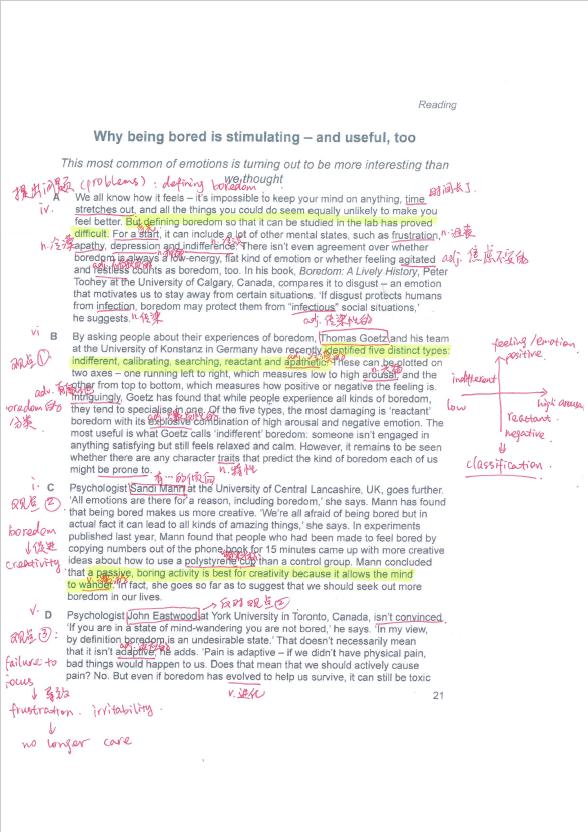 Reading
Why being bored is stimulating – and useful, too
This most common of emotions is turning out to be more interesting than
we thought
提出问题 (problems) : defining boredom
时间长了
A
iv.
We all know how it feels – it's impossible to keep your mind on anything, time
stretches out, and all the things you could do seem equally unlikely to make you
feel better. But defining boredom so that it can be studied in the lab has proved
difficult. For a start, it can include a lot of other mental states, such as frustration,
n. 沮丧
n. 冷漠
apathy, depression and indifference. There isn't even agreement over whether
boredom is always a low-energy, flat kind of emotion or whether feeling agitated
adj. 焦虑不安的
and restless counts as boredom, too. In his book, Boredom: A Lively History, Peter
Toohey at the University of Calgary, Canada, compares it to disgust – an emotion
that motivates us to stay away from certain situations. 'If disgust protects humans
from infection, boredom may protect them from "infectious" social situations,'
he suggests.
n. 传染
adj. 传染性的
vi
B
By asking people about their experiences of boredom, Thomas Goetz and his team
at the University of Konstanz in Germany have recently identified five distinct types:
indifferent, calibrating, searching, reactant and apathetic. These can be plotted on
two axes – one running left to right, which measures low to high arousal, and the
other from top to bottom, which measures how positive or negative the feeling is.
Intriguingly, Goetz has found that while people experience all kinds of boredom,
they tend to specialise in one. Of the five types, the most damaging is 'reactant'
boredom with its explosive combination of high arousal and negative emotion. The
most useful is what Goetz calls 'indifferent' boredom: someone isn't engaged in
anything satisfying but still feels relaxed and calm. However, it remains to be seen
whether there are any character traits that predict the kind of boredom each of us
might be prone to.
有…的倾向
n. 特性
观点①
boredom的
分类
feeling / emotion
positive.
indifferent
low
high arousal
reactant
negative
classification.
i.
C
Psychologist Sandi Mann at the University of Central Lancashire, UK, goes further.
'All emotions are there for a reason, including boredom,' she says. Mann has found
that being bored makes us more creative. 'We're all afraid of being bored but in
actual fact it can lead to all kinds of amazing things,' she says. In experiments
published last year, Mann found that people who had been made to feel bored by
copying numbers out of the phone book for 15 minutes came up with more creative
ideas about how to use a polystyrene cup than a control group. Mann concluded
that a passive, boring activity is best for creativity because it allows the mind
to wander. In fact, she goes so far as to suggest that we should seek out more
boredom in our lives.
观点②
boredom
↓促进
creativity
反对观点②
v.
D
Psychologist John Eastwood at York University in Toronto, Canada, isn't convinced.
'If you are in a state of mind-wandering you are not bored,' he says. 'In my view,
by definition boredom is an undesirable state.' That doesn't necessarily mean
that it isn't adaptive, he adds. 'Pain is adaptive – if we didn't have physical pain,
bad things would happen to us. Does that mean that we should actively cause
pain? No. But even if boredom has evolved to help us survive, it can still be toxic
v. 进化
观点③:
failure to
focus
↓ 导致
frustration. irritability.
↓
no longer care
21